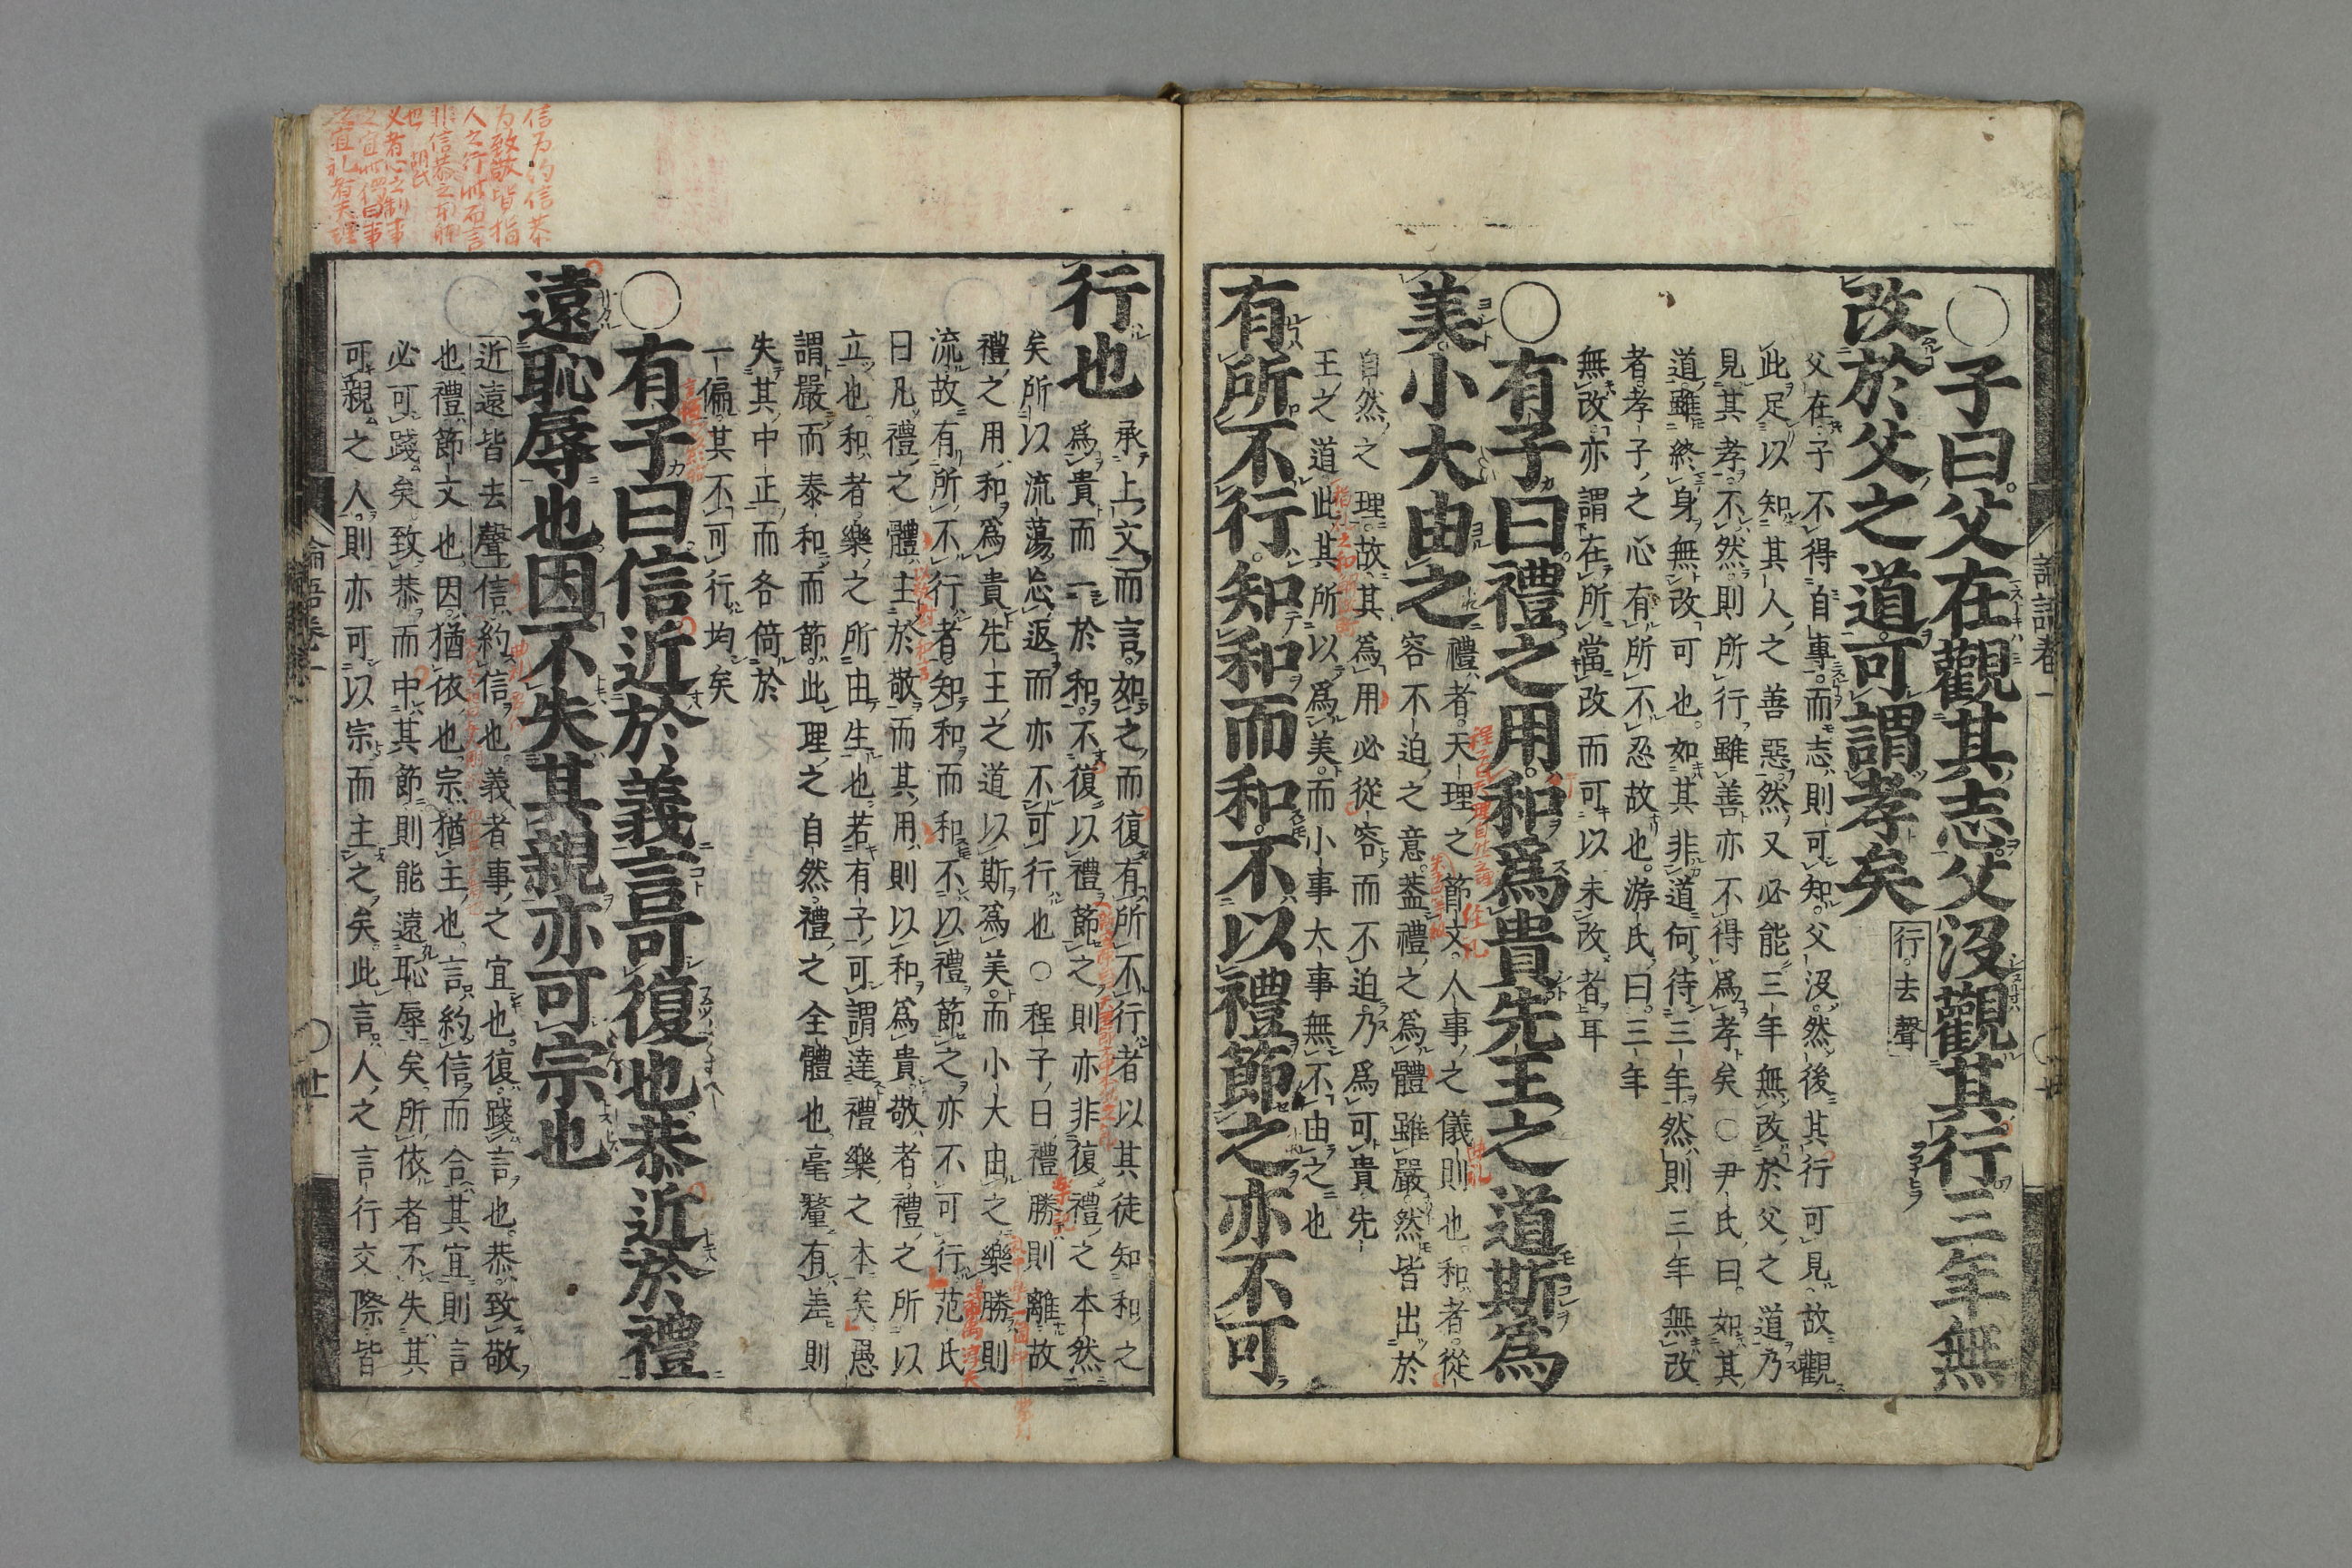 論語卷一
○子曰父在觀其志父没觀其行三年無
改於父之道可謂孝矣行去聲
父在子不得自專而志則可知父没然後其行可見故觀
此足以知其人之善惡然又必能三年無改於父之道乃
見其孝不然則所行雖善亦不得爲孝矣○尹氏曰如其
道雖終身無改可也如其非道何待三年然則三年無改
者孝子之心有所不忍故也游氏曰三年
無改亦謂在所當改而可以未改者耳
○有子曰禮之用和爲貴先王之道斯爲
美小大由之
禮者天理之節文人事之儀則也和者從
容不迫之意蓋禮之爲體雖嚴然皆出於
自然之理故其爲用必從容而不迫乃爲可貴先
王之道此其所以爲美而小事大事無不由之也
有所不行知和而和不以禮節之亦不可
行也
承上文而言如之而復有所不行者以其徒知和之
爲貴而一於和不復以禮節之則亦非復禮之本然
矣所以流蕩忘返而亦不可行也○程子曰禮勝則離故
禮之用和爲貴先王之道以斯爲美而小大由之樂勝則
流故有所不行者知和而和不以禮節之亦不可行范氏
曰凡禮之體主於敬而其用則以和爲貴敬者禮之所以
立也和者樂之所由生也若有子可謂達禮樂之本矣愚
謂嚴而泰和而節此理之自然禮之全體也毫釐有差則
失其中正而各倚於
一偏其不可行均矣
○有子曰信近於義言可復也恭近於禮
遠恥辱也因不失其親亦可宗也
近遠皆去聲信約信也義者事之宜也復踐言也恭致敬
也禮節文也因猶依也宗猶主也言約信而合其宜則言
必可踐矣致恭而中其節則能遠恥辱矣所依者不失其
可親之人則亦可以宗而主之矣此言人之言行交際皆
論語卷一
○廿一
信為約信恭
為致敬皆指
人之行此而言
非信恭之本體
也 胡氏
義者心之制事
之宜此但曰事
之宜礼者天理